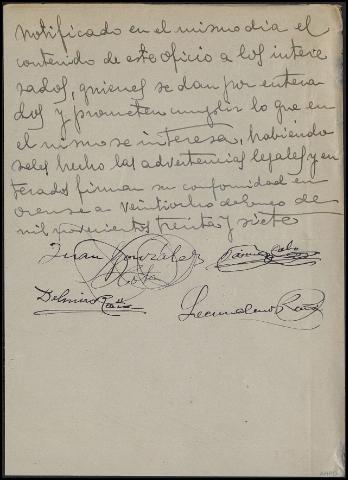 notificado en el mismo dia el
contenido de este oficio a los intere
sados, quienes se dan por entera
dos y prometen cumplir lo que en
el mismo se interesa, habiendo
seles hecho las advertencias legales y en
terados firman su conformidad en
orense a veintiocho de enero de
mil novecientos treinta y siete
Juan González
Delmiro
Secundino